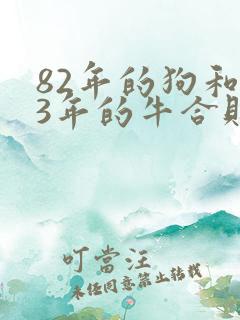 82年的狗和
3年的牛合
叮當汪
未经同意禁止转载